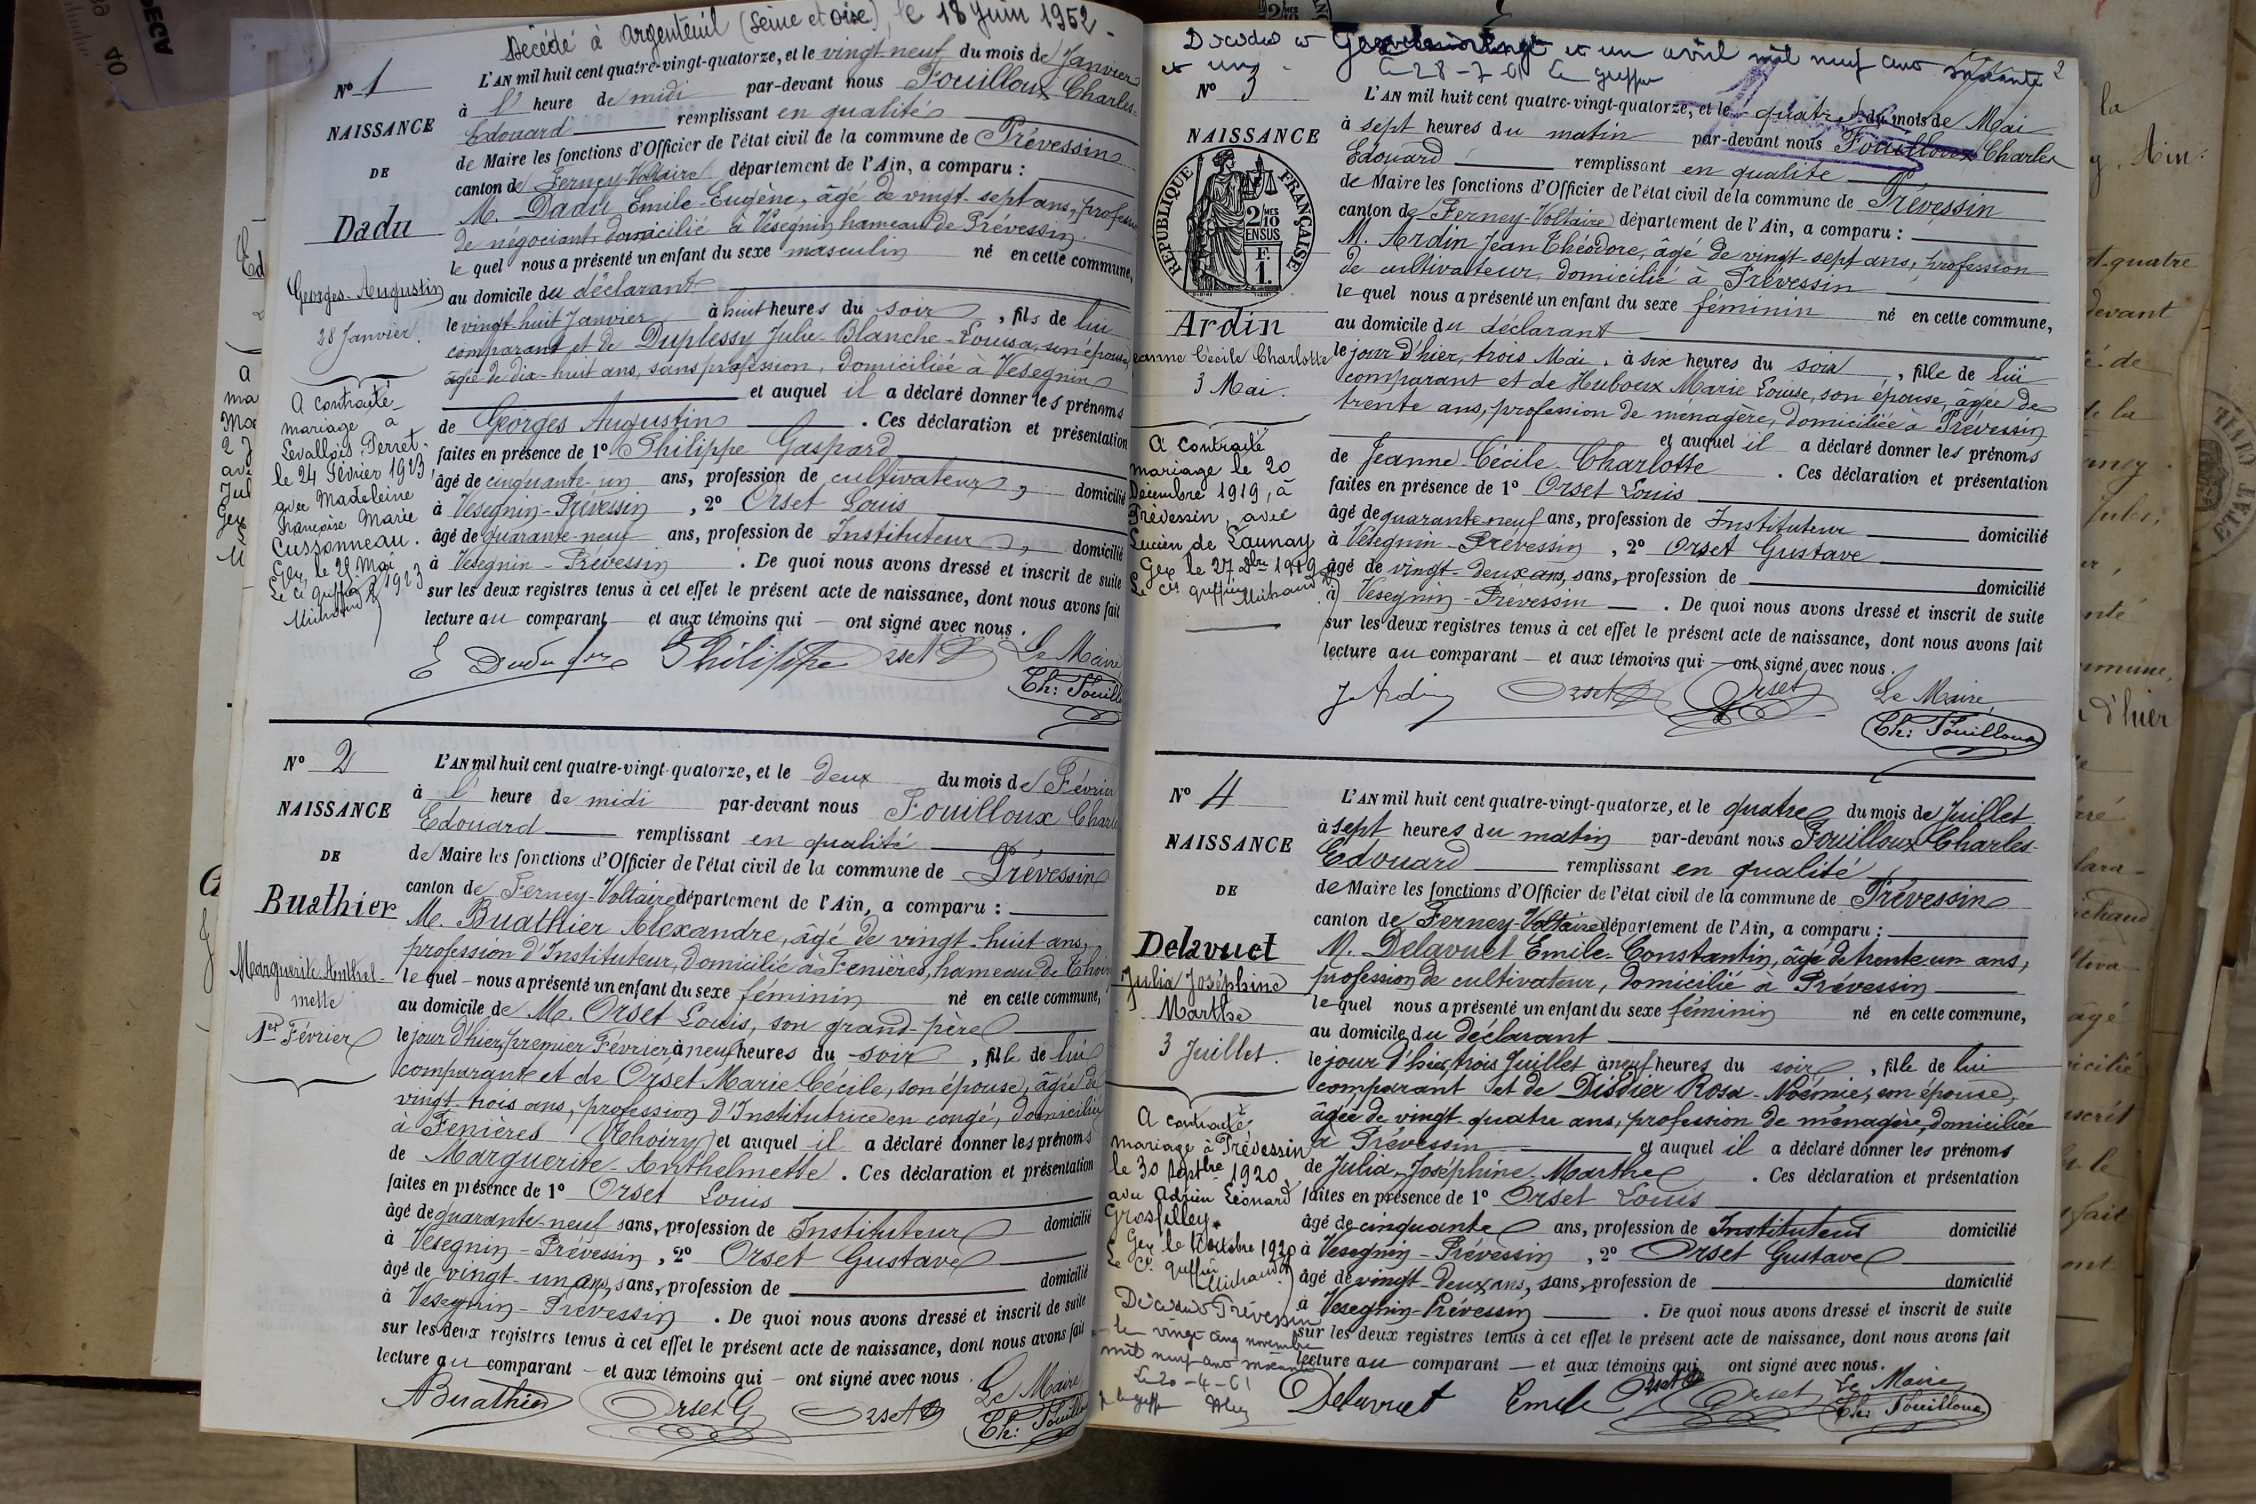 Décédé à Argenteuil (Seine et Oise), le 18 Juin 1952 -
N° 1
NAISSANCE
DE
Dadu
Georges-Augustin
28 Janvier.
A contracté
mariage à
Levallois-Perret
le 24 Février 1923
avec Madeleine
Françoise Marie
Cussonneau.
Gex, le 29 Mai 1923
Le Cis greffier
Michaud
L'AN mil huit cent quatre-vingt-quatorze, et le vingt-neuf du mois de Janvier
à l' heure de midi par-devant nous Fouilloux Charles-
Edouard remplissant en qualité
de Maire les fonctions d'Officier de l'état civil de la commune de Prévessin
canton de Ferney-Voltaire département de l'Ain, a comparu :
M. Dadu Emile-Eugène, âgé de vingt-sept ans, profession
de négociant, domicilié à Vésegnin hameau de Prévessin.
le quel nous a présenté un enfant du sexe masculin né en cette commune,
au domicile du déclarant
le vingt-huit Janvier à huit heures du soir, fils de lui
comparant et de Duplessy Julie-Blanche-Louisa, son épouse,
âgée de dix-huit ans, sans profession, domiciliée à Vésegnin
et auquel il a déclaré donner les prénoms
de Georges Augustin. Ces déclaration et présentation
faites en présence de 1° Philippe Gaspard
âgé de cinquante-un ans, profession de cultivateur, domicilié
à Vésegnin-Prévessin, 2° Orset Louis
âgé de quarante-neuf ans, profession de Instituteur, domicilié
à Vésegnin-Prévessin. De quoi nous avons dressé et inscrit de suite
sur les deux registres tenus à cet effet le présent acte de naissance, dont nous avons fait
lecture au comparant et aux témoins qui ont signé avec nous.
E Dadu Philippe Orset Le Maire
Ch: Fouill
N° 2
NAISSANCE
DE
Buathier
Marguerite-Anthel-
mette
1er Février
L'AN mil huit cent quatre-vingt-quatorze, et le deux du mois de Février
à l' heure de midi par-devant nous Fouilloux Charle
Edouard remplissant en qualité
de Maire les fonctions d'Officier de l'état civil de la commune de Prévessin
canton de Ferney-Voltaire département de l'Ain, a comparu :
M. Buathier Alexandre, âgé de vingt-huit ans,
profession d'Instituteur, domicilié à Fenières, hameau de Thoiry
le quel nous a présenté un enfant du sexe féminin né en cette commune,
au domicile de M. Orset Louis, son grand-père
le jour d'hier, premier Février à neuf heures du soir, fille de lui
comparant et de Orset Marie Cécile, son épouse, âgée de
vingt-trois ans, profession d'Institutrice en congé, domiciliée
à Fenières (Thoiry) et auquel il a déclaré donner les prénoms
de Marguerite-Anthelmette. Ces déclaration et présentation
faites en présence de 1° Orset Louis
âgé de quarante-neuf ans, profession de Instituteur domicilié
à Vésegnin-Prévessin, 2° Orset Gustave
âgé de vingt-un ans, sans, profession de domicilié
à Vésegnin-Prévessin. De quoi nous avons dressé et inscrit de suite
sur les deux registres tenus à cet effet le présent acte de naissance, dont nous avons fait
lecture au comparant et aux témoins qui ont signé avec nous.
ABuathier Orset G Orset Le Maire,
Ch: Fouillou
Décédée à Gex vingt et un avril mil neuf cent soixante
et un.
Le 28-7-61 Le greffier
2
N° 3
NAISSANCE
RÉPUBLIQUE FRANÇAISE
2/10 MES
EN SUS
F.
1.
Ardin
eanne Cécile Charlotte
3 Mai.
A contracté
mariage le 20
Décembre 1919, à
Prévessin, avec
Lucien de Launay
Gex le 27 Xbre 1919
Le Cis greffier
Michaud
L'AN mil huit cent quatre-vingt-quatorze, et le quatre du mois de Mai
à sept heures du matin par-devant nous Fouilloux Charles
Edouard remplissant en qualité
de Maire les fonctions d'Officier de l'état civil de la commune de Prévessin
canton de Ferney-Voltaire département de l'Ain, a comparu :
M. Ardin Jean Théodore, âgé de vingt-sept ans, profession
de cultivateur, domicilié à Prévessin
le quel nous a présenté un enfant du sexe féminin né en cette commune,
au domicile du déclarant
le jour d'hier, trois Mai, à six heures du soir, fille de lui
comparant et de Huboux Marie Louise, son épouse, âgée de
trente ans, profession de ménagère, domiciliée à Prévessin
et auquel il a déclaré donner les prénoms
de Jeanne-Cécile-Charlotte. Ces déclaration et présentation
faites en présence de 1° Orset Louis
âgé de quarante-neuf ans, profession de Instituteur domicilié
à Vésegnin-Prévessin, 2° Orset Gustave
âgé de vingt-deux ans, sans, profession de domicilié
à Vésegnin-Prévessin. De quoi nous avons dressé et inscrit de suite
sur les deux registres tenus à cet effet le présent acte de naissance, dont nous avons fait
lecture au comparant et aux témoins qui ont signé avec nous.
J Ardin Orset Orset Le Maire,
Ch: Fouilloux
N° 4
NAISSANCE
DE
Delavuet
Julia Joséphine
Marthe
3 Juillet.
A contracté
mariage à Prévessin
le 30 Septbre 1920
avec Adrien Léonard
Grosfilley.
Gex le Octobre 1920
Le Cis greffier
Michaud
Décédée Prévessin
le vingt cinq novembre
mil neuf cent soixante
Le 20-4-61
le greff
L'AN mil huit cent quatre-vingt-quatorze, et le quatre du mois de Juillet
à sept heures du matin par-devant nous Fouilloux Charles-
Edouard remplissant en qualité
de Maire les fonctions d'Officier de l'état civil de la commune de Prévessin
canton de Ferney-Voltaire département de l'Ain, a comparu :
M. Delavuet Emile-Constantin, âgé de trente-un ans,
profession de cultivateur, domicilié à Prévessin
le quel nous a présenté un enfant du sexe féminin né en cette commune,
au domicile du déclarant
le jour d'hier, trois Juillet à neuf heures du soir, fille de lui
comparant et de Disdier Rosa-Noémie, son épouse,
âgée de vingt-quatre ans, profession de ménagère, domiciliée
à Prévessin et auquel il a déclaré donner les prénoms
de Julia-Joséphine-Marthe. Ces déclaration et présentation
faites en présence de 1° Orset Louis
âgé de cinquante ans, profession de Instituteur domicilié
à Vésegnin-Prévessin, 2° Orset Gustave
âgé de vingt-deux ans, sans, profession de domicilié
à Vésegnin-Prévessin. De quoi nous avons dressé et inscrit de suite
sur les deux registres tenus à cet effet le présent acte de naissance, dont nous avons fait
lecture au comparant et aux témoins qui ont signé avec nous.
Delavuet Emile Orset Orset Le Maire
Ch: Fouilloux